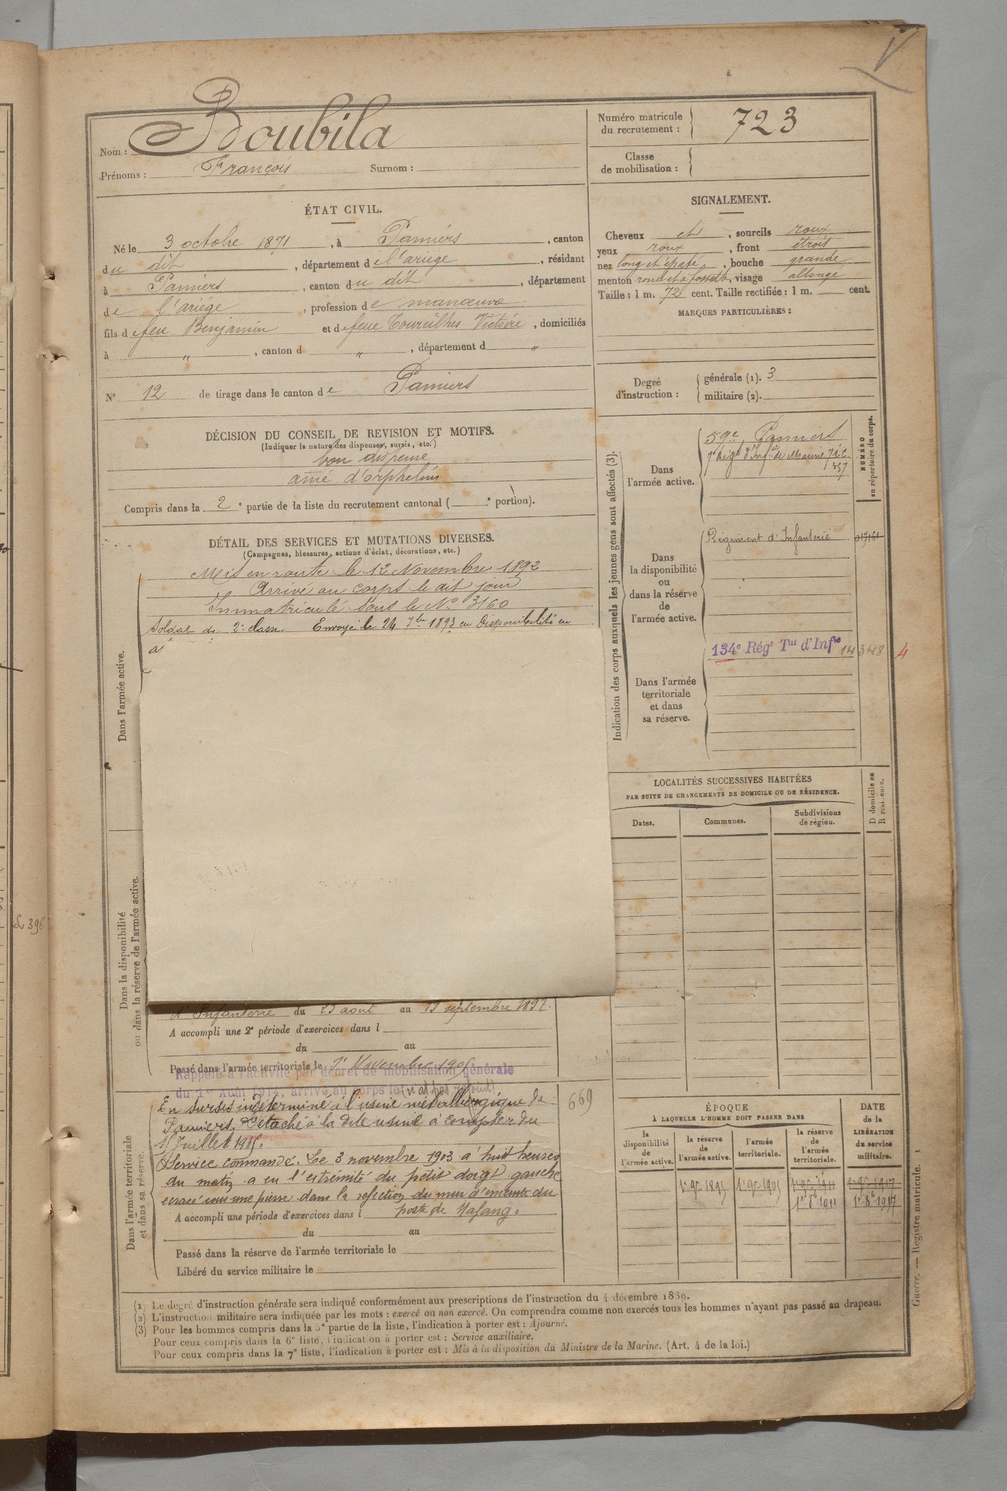 Nom : Boubila
Prénoms : François Surnom :
Numéro matricule du recrutement : 723
Classe de mobilisation :
ÉTAT CIVIL.
Né le 3 octobre 1871, à Pamiers, canton
du dit, département de l'ariège, résidant
à Pamiers, canton du dit, département
de l'ariège, profession de manœuvre
fils de feu Benjamin et de feue Toureilhes Victoire, domiciliés
à " , canton d " , département d "
N° 12 de tirage dans le canton de Pamiers
SIGNALEMENT.
Cheveux et , sourcils roux
yeux roux , front étroit
nez long et épaté, bouche grande
menton rond et à fossette, visage allongé
Taille : 1 m. 72 cent. Taille rectifiée : 1 m. cent.
MARQUES PARTICULIÈRES :
Degré d'instruction : générale (1). 3
militaire (2).
DÉCISION DU CONSEIL DE REVISION ET MOTIFS.
(Indiquer la nature des dispenses, sursis, etc.)
bon dispensé
ainé d'orphelins
Compris dans la 2e partie de la liste du recrutement cantonal ( e portion).
DÉTAIL DES SERVICES ET MUTATIONS DIVERSES.
(Campagnes, blessures, actions d'éclat, décorations, etc.)
Mis en route le 12 Novembre 1892
Arrivé au corps le dit jour
Immatriculé sous le N° 3160
Soldat de 2e classe. Envoyé le 24 7bre 1893 en disponibilité en
Dans l'armée active.
Dans la disponibilité ou dans la réserve de l'armée active.
d'Infanterie du 23 aout au 19 septembre 1897.
A accompli une 2e période d'exercices dans l
du au
Passé dans l'armée territoriale le 1er Novembre 1905
Rappelé à l'activité par décret de mobilisation générale
du 1er Août 1914, arrivé au corps le (n'a pas rejoint)
En sursis indéterminé à l'usine métallurgique de
Pamiers. Détaché à la dite usine à compter du
1er Juillet 1915.
Service commandé. Le 3 novembre 1903 à huit heures
du matin a eu l'extrémité du petit doigt gauche
ecrasé sous une pierre dans la refection du mur d'enceinte du
poste de Nafang.
A accompli une période d'exercices dans l
du au
Passé dans la réserve de l'armée territoriale le
Libéré du service militaire le
Dans l'armée territoriale et dans sa réserve.
669
Indication des corps auxquels les jeunes gens sont affectés (3).
NUMÉRO au répertoire du corps.
Dans l'armée active.
59e, Pamiers
Dans la disponibilité ou dans la réserve de l'armée active.
Régiment d'Infanterie
Dans l'armée territoriale et dans sa réserve.
134e Régt Tal d'Infie 14348 4
LOCALITÉS SUCCESSIVES HABITÉES
PAR SUITE DE CHANGEMENTS DE DOMICILE OU DE RÉSIDENCE.
Dates. Communes. Subdivisions de région. D domicile ou R résidence.
ÉPOQUE
À LAQUELLE L'HOMME DOIT PASSER DANS
la disponibilité de l'armée active.
la réserve de l'armée active.
l'armée territoriale.
la réserve de l'armée territoriale.
DATE de la LIBÉRATION du service militaire.
1er 9e 1895 1er 9e 1905 1er 9e 1911 1er 9e 1917
1er 8e 1911 1er 8e 1917
(1) Le degré d'instruction générale sera indiqué conformément aux prescriptions de l'instruction du 4 décembre 1889.
(2) L'instruction militaire sera indiquée par les mots : exercé ou non exercé. On comprendra comme non exercés tous les hommes n'ayant pas passé au drapeau.
(3) Pour les hommes compris dans la 5e partie de la liste, l'indication à porter est : Ajourné.
Pour ceux compris dans la 6e liste, l'indication à porter est : Service auxiliaire.
Pour ceux compris dans la 7e liste, l'indication à porter est : Mis à la disposition du Ministre de la Marine. (Art. 4 de la loi.)
Guerre. — Registre matricule. 1